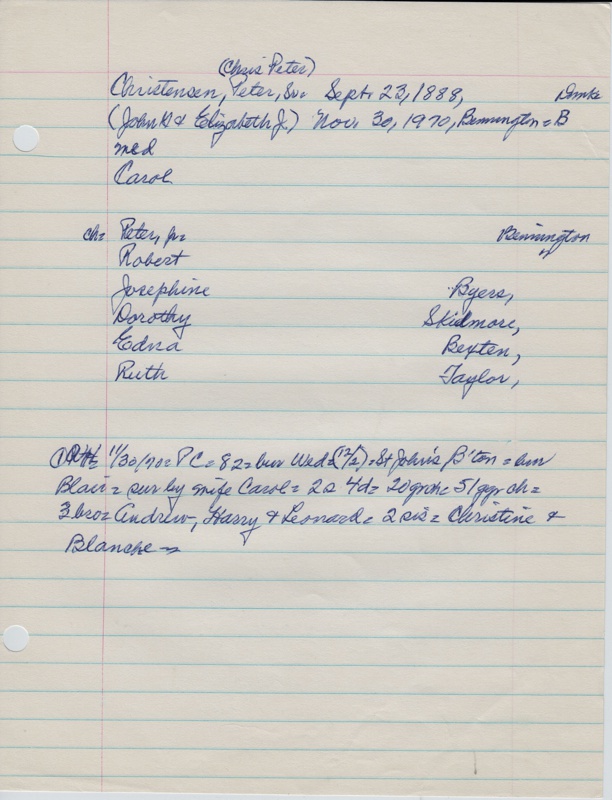 (Chris Peter)
Christensen, Peter, Sr. Sept. 23, 1888,
(John & Elizabeth J.) Nov. 30, 1970, Bennington = B
md
Carol
ch= Peter, Jr= Bennington
Robert "
Josephine Byers,
Dorothy Skidmore,
Edna Bexten,
Ruth Taylor,
11/30/70= PC= 82= bur Wed= (12/2)= St John's B'ton =
Blair= sur by wife Carol= 2s 4d= 20 grch= 51 ggr ch=
3 bro= Andrew, Harry & Leonard= 2 sis= Christine &
Blanche